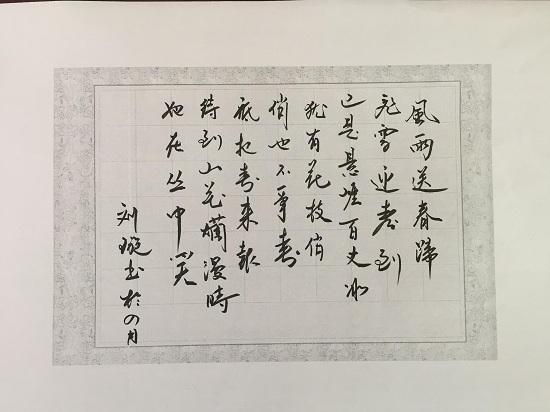 風雨送春歸
飛雪迎春到
已是悬崖百丈冰
犹有花枝俏
俏也不爭春
祇把春来報
待到山花爛漫時
她在丛中笑
刘璇书於四月